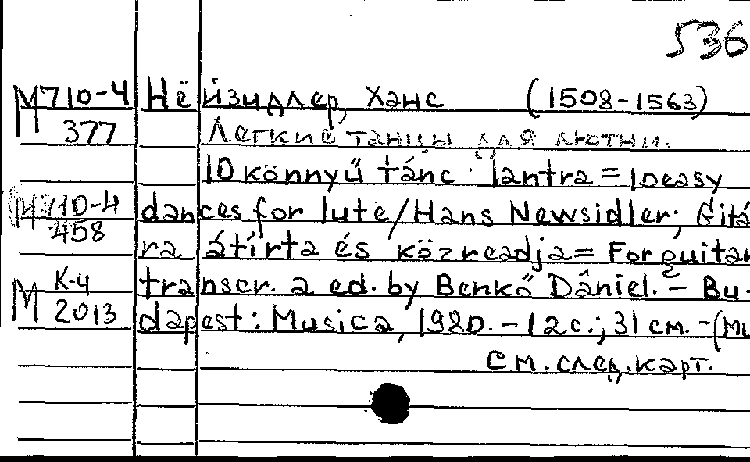 536
М710-4 Нёйзидлер, Ханс (1508-1563)
377 Легкие танцы для лютни.
10 könnyű tánc lantra = 10 easy
М710-4 dances for lute/Hans Newsidler; Gitá-
458 ra átírta és közreadja = For guitar
М К-4 transcr. a ed. by Benkő Dániel. – Bu-
2013 dapest: Musica, 1980. – 12 с.; 31 см. – (Mu
См. след. карт.